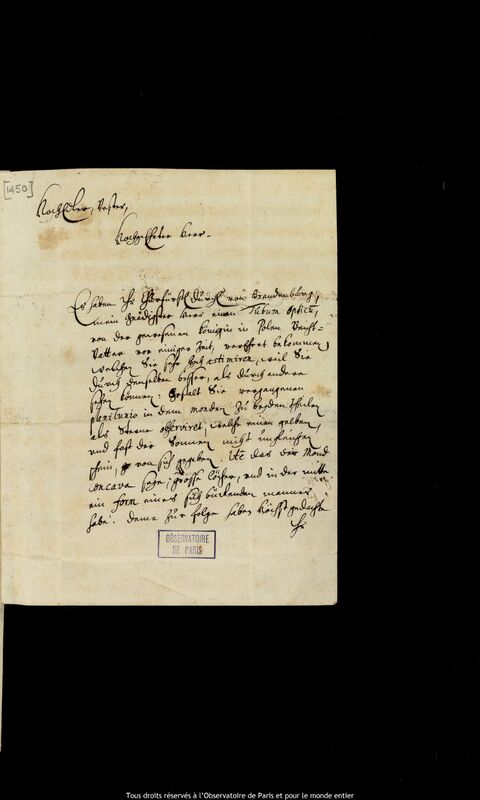 [1450]
HochEdler, Vester,
Hochgeehrter Herr.
Es haben Ihr Churfürstl. Durchl. von Brandenburg,
mein gnädigster Herr einen Tubum opticū,
von der gewesenen Königin in Polen Beicht-
Vatter vor einiger Zeit, verehret bekommen,
welchen Sie sehr hoch æstimiren, weil Sie
durch denselben besser, als durch andere
sehen können: Gestalt Sie vergangenen
plenilunio in dem monden zu beyden theilen
als Sterne observiret, welche einen gelben,
und fast der Sonnen nicht ungleichen
schein, von sich gegeben. Ite das der Mond
concava sehe, grosse löcher, und in der mitte
ein form eines sich bückenden mannes
habe. Deme zur folge haben höchst gedachte
Ihr
OBSERVATOIRE
DE PARIS
Tous droits réservés à l'Observatoire de Paris et pour le monde entier